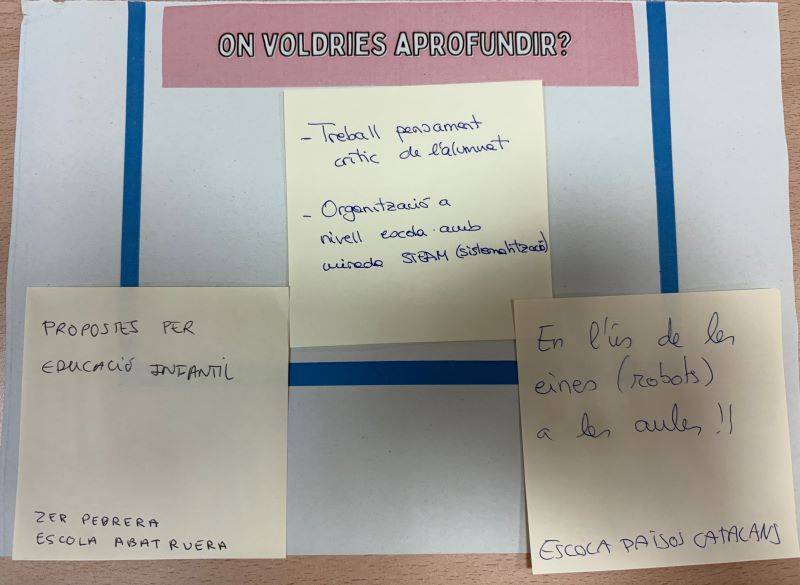 ON VOLDRIES APROFUNDIR?
- Treball pensament
crític de l'alumnat
- Organització a
nivell escola amb
mirada STEAM (sistematització)
PROPOSTES PER
EDUCACIÓ INFANTIL
ZER PEDRERA
ESCOLA ABAT RUERA
En l'ús de les
eines (robots)
a les aules!!
ESCOLA PAÏSOS CATALANS